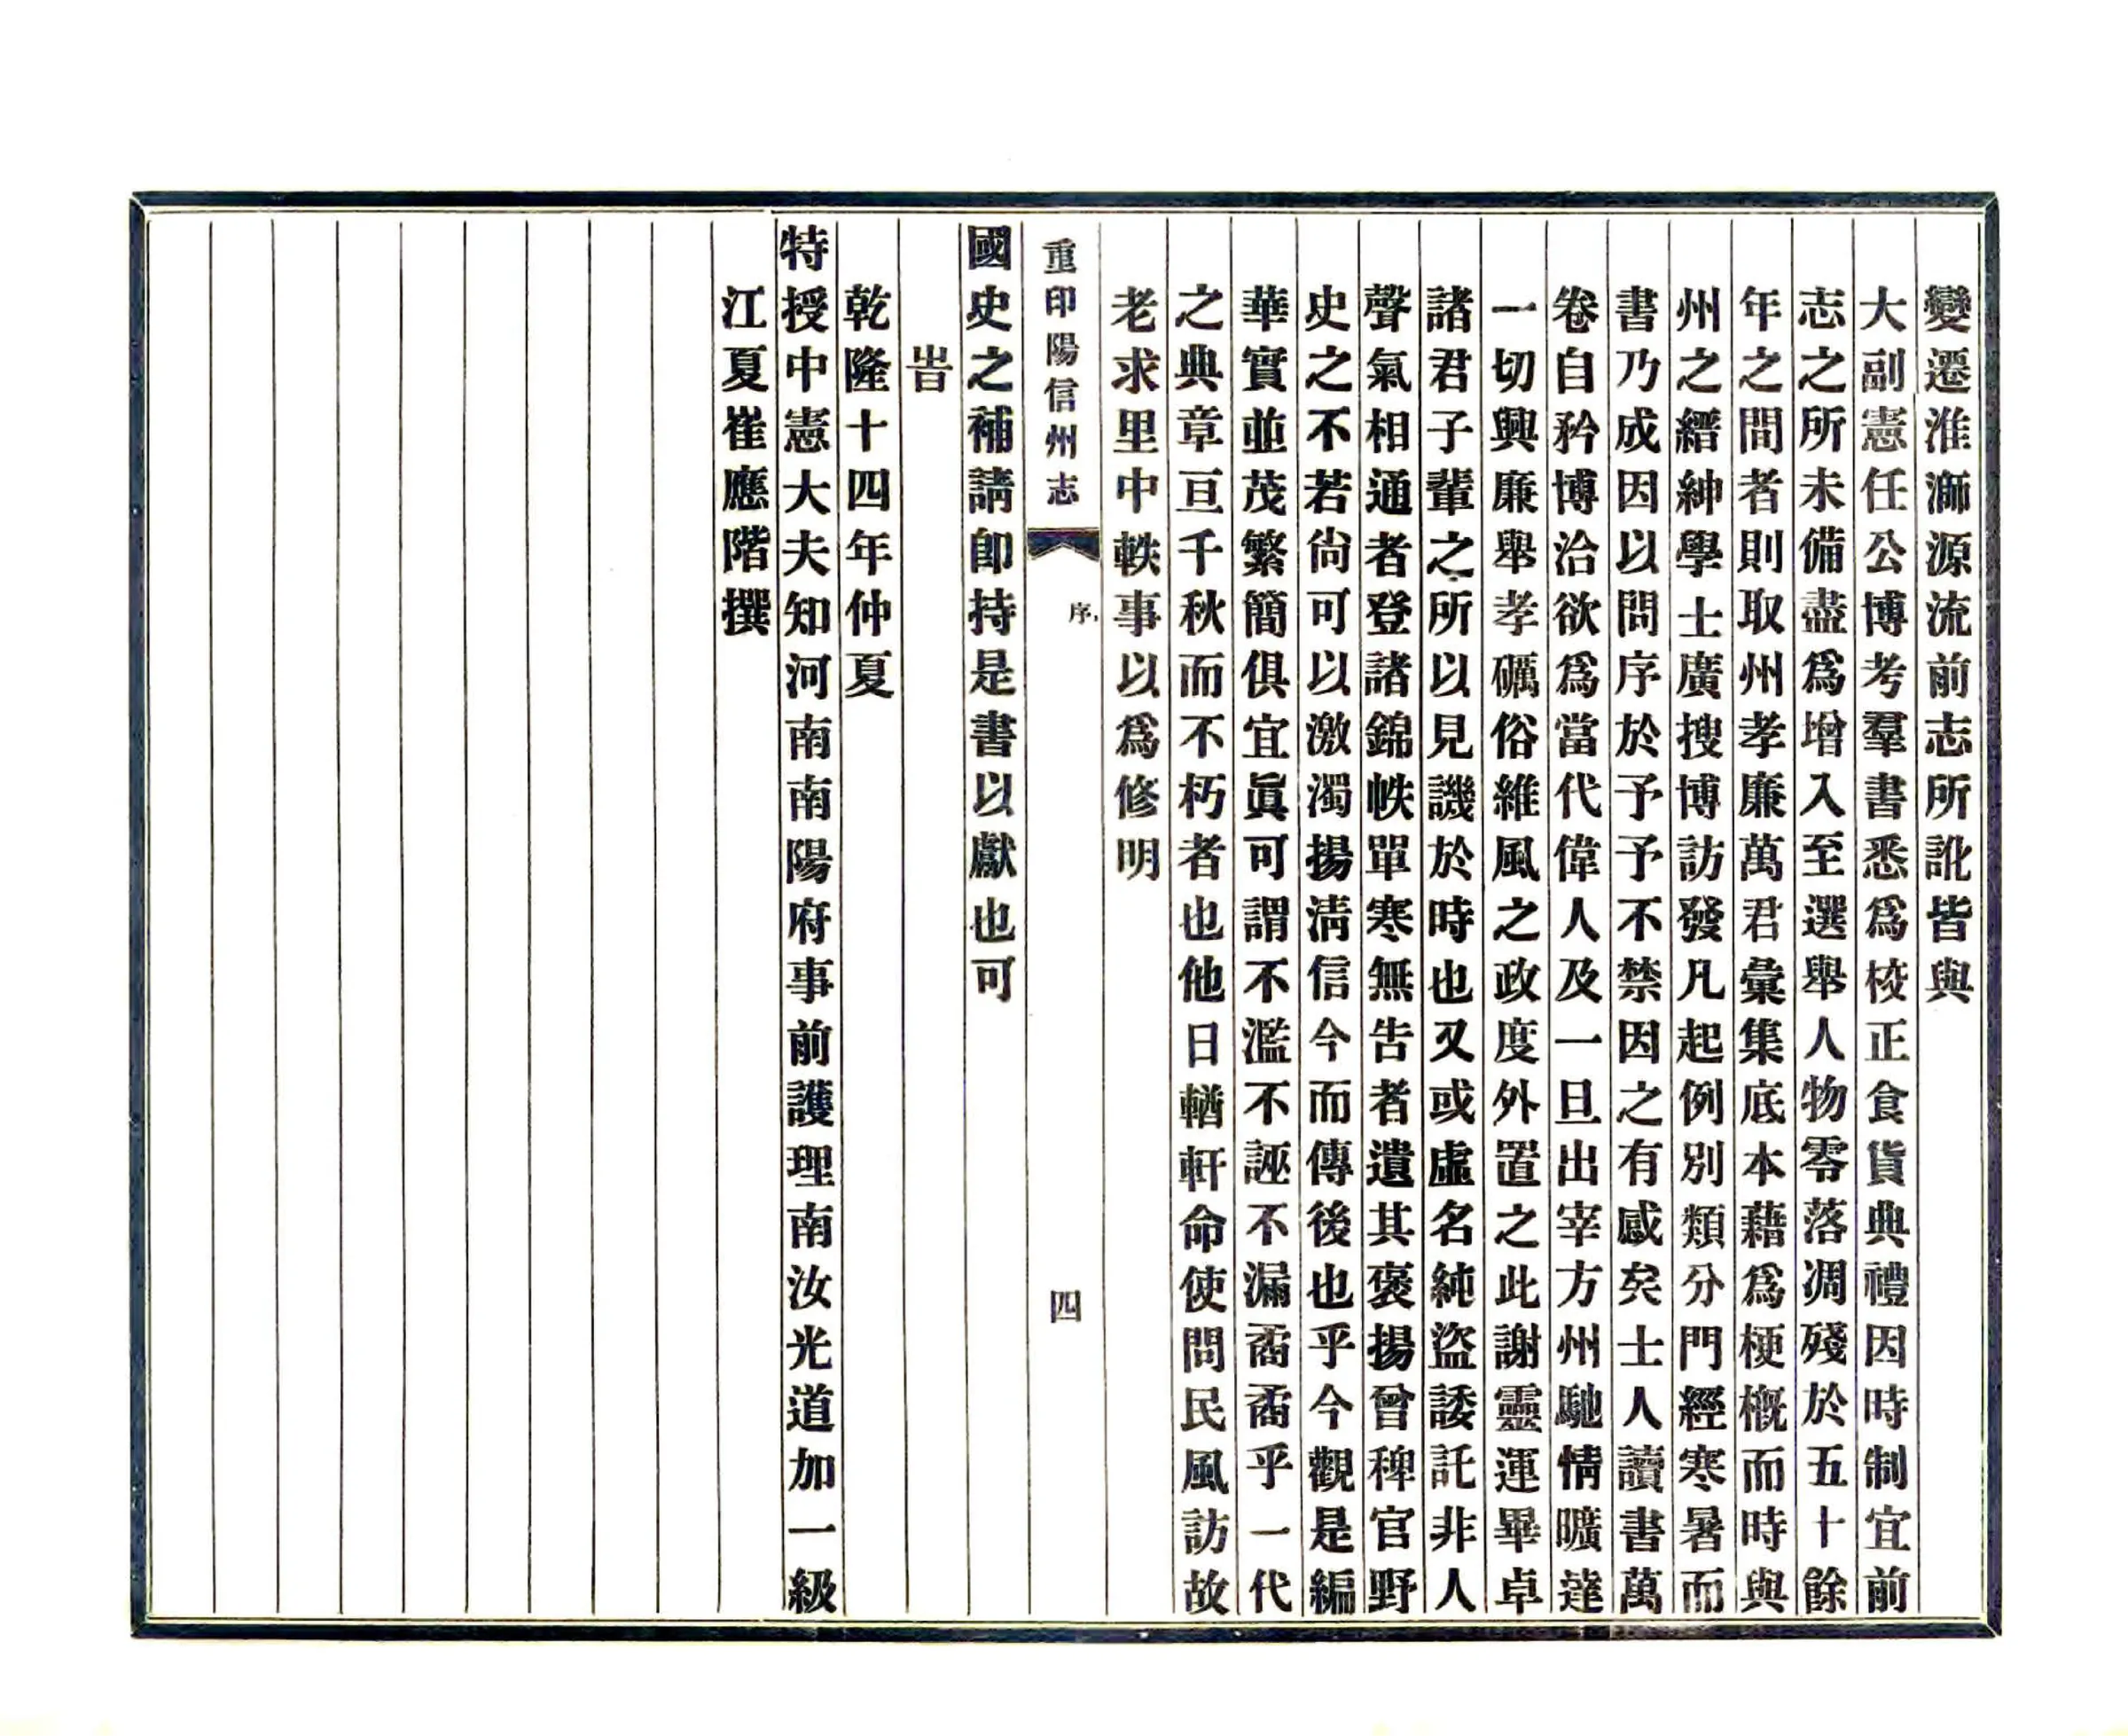 變遷淮㴲源流前志所訛皆與
大副憲任公博考羣書悉爲校正食貨典禮因時制宜前
志之所未備盡爲增入至選舉人物零落凋殘於五十餘
年之間者則取州孝廉萬君彙集底本藉爲梗概而時與
州之縉紳學士廣搜博訪發凡起例別類分門經寒暑而
書乃成因以問序於予予不禁因之有感矣士人讀書萬
卷自矜博洽欲爲當代偉人及一旦出宰方州馳情曠達
一切興廉舉孝礪俗維風之政度外置之此謝靈運畢卓
諸君子輩之所以見譏於時也又或虛名純盜諉託非人
聲氣相通者登諸錦帙單寒無告者遺其褒揚曾稗官野
史之不若尙可以激濁揚淸信今而傳後也乎今觀是編
華實並茂繁簡俱宜眞可謂不濫不誣不漏矞矞乎一代
之典章亘千秋而不朽者也他日輶軒命使問民風訪故
老求里中軼事以爲修明
重印陽信州志
序
四
國史之補請卽持是書以獻也可
旹
乾隆十四年仲夏
特授中憲大夫知河南南陽府事前護理南汝光道加一級
江夏崔應階撰